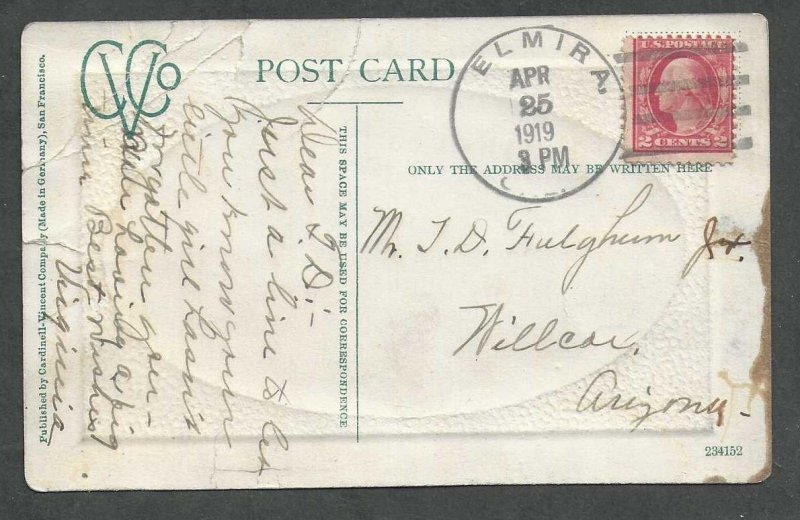 Published by Cardinell-Vincent Company (Made in Germany), San Francisco.
CVCo
POST CARD
THIS SPACE MAY BE USED FOR CORRESPONDENCE
ONLY THE ADDRESS MAY BE WRITTEN HERE
ELMIRA,
APR
25
1919
3 PM
U.S. POSTAGE
2 CENTS 2
Dear I. D:-
Just a line to let
you know your
little girl hasn't
forgotten you-
Best Wishes
Virginia
Mr. I. D. Fulghum Jr.
Willcox,
Arizona.
234152